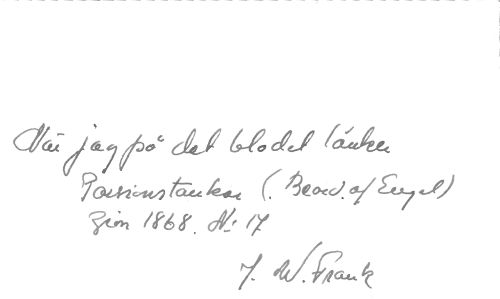 När jag på det blodet tänker
Passionstankar (. Bearb. af Engel)
Zion 1868. N: 17
J. W. Frank